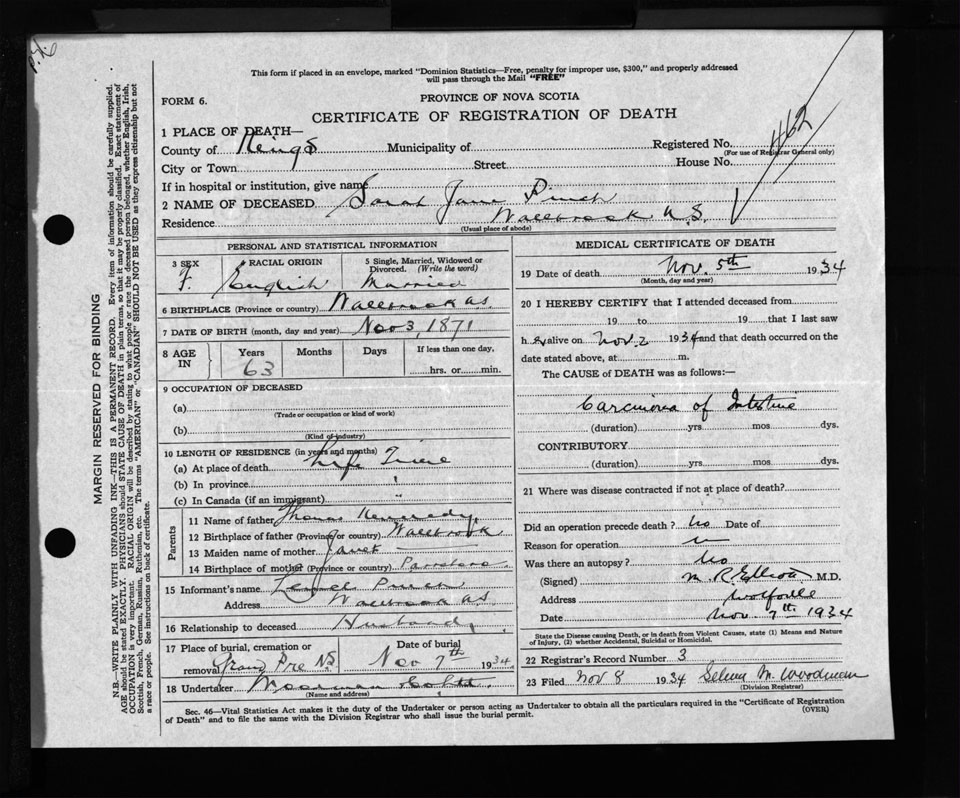 This form if placed in an envelope, marked "Dominion Statistics—Free, penalty for improper use, $300," and properly addressed
will pass through the Mail "FREE"
FORM 6.
PROVINCE OF NOVA SCOTIA
CERTIFICATE OF REGISTRATION OF DEATH
462
1 PLACE OF DEATH—
County of Kings Municipality of Registered No.
(For use of Registrar General only)
City or Town Street House No.
If in hospital or institution, give name
2 NAME OF DECEASED Sarah Jane Pinch
Residence Wallbrook N.S.
(Usual place of abode)
PERSONAL AND STATISTICAL INFORMATION
3 SEX 4 RACIAL ORIGIN 5 Single, Married, Widowed or Divorced. (Write the word)
F. English Married
6 BIRTHPLACE (Province or country) Wallbrook N.S.
7 DATE OF BIRTH (month, day and year) Nov 3, 1871
8 AGE IN Years Months Days If less than one day,
63 hrs. or min.
9 OCCUPATION OF DECEASED
(a)
(Trade or occupation or kind of work)
(b)
(Kind of industry)
10 LENGTH OF RESIDENCE (in years and months)
(a) At place of death Life Time
(b) In province "
(c) In Canada (if an immigrant)
Parents
11 Name of father Thomas Kennedy
12 Birthplace of father (Province or country) Wallbrook
13 Maiden name of mother Janet —
14 Birthplace of mother (Province or country) Parrsboro
15 Informant's name Pinch
Address Wallbrook N.S.
16 Relationship to deceased Husband
17 Place of burial, cremation or removal Grand Pre NS Date of burial Nov 7th 1934
18 Undertaker
(Name and address)
MEDICAL CERTIFICATE OF DEATH
19 Date of death Nov. 5th 1934
(Month, day and year)
20 I HEREBY CERTIFY that I attended deceased from
19 to 19 that I last saw
her alive on Nov. 2 1934 and that death occurred on the
date stated above, at m.
The CAUSE of DEATH was as follows:—
Carcinoma of Intestine
(duration) yrs mos dys.
CONTRIBUTORY
(duration) yrs mos dys.
21 Where was disease contracted if not at place of death?
Did an operation precede death? No Date of
Reason for operation
Was there an autopsy? No
(Signed) M. R. Elliott M.D.
Address Wolfville
Date Nov. 7th 1934
State the Disease causing Death, or in death from Violent Causes, state (1) Means and Nature
of Injury, (2) whether Accidental, Suicidal or Homicidal.
22 Registrar's Record Number 3
23 Filed Nov 8 1934 Selena M. Woodman
(Division Registrar)
Sec. 46—Vital Statistics Act makes it the duty of the Undertaker or person acting as Undertaker to obtain all the particulars required in the "Certificate of Registration
of Death" and to file the same with the Division Registrar who shall issue the burial permit.
(OVER)
MARGIN RESERVED FOR BINDING
N.B.—WRITE PLAINLY WITH UNFADING INK—THIS IS A PERMANENT RECORD. Every item of information should be carefully supplied.
AGE should be stated EXACTLY. PHYSICIANS should STATE CAUSE OF DEATH in plain terms, so that it may be properly classified. Exact statement of
OCCUPATION is very important. RACIAL ORIGIN will be described by stating to what people or race the deceased person belonged, whether English, Irish,
Scottish, French, German, Russian, Ruthenian, etc. The terms "AMERICAN" or "CANADIAN" SHOULD NOT BE USED as they express citizenship but not
a race or people. See instructions on back of certificate.